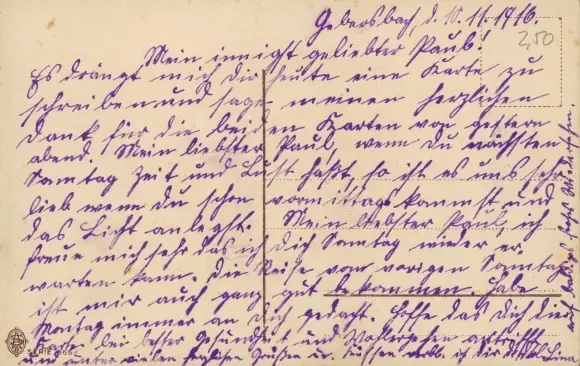 Gebersbach, d. 10.11.1916.
2,50
Mein innigst geliebter Paul!
Es drängt mich dir heute eine Karte zu
schreiben und sage meinen herzlichen
Dank für die beiden Karten von gestern
abend. Mein liebster Paul, wenn du nächsten
Samstag Zeit und Lust haßt, so ist es uns sehr
lieb wenn du schon vormittags kommst und
das Licht anlegst. Mein liebster Paul, ich
freue mich sehr das ich dich Samstag wieder er-
warten kann. Die Reise vom vorigen Sonntag
ist mir auch ganz gut bekommen. Habe
Montag immer an dich gedacht. Hoffe das dich die
Karte bei bester Gesundheit und Wohlergehen antrifft
und unter vielen herzlichen Grüßen u. Küssen verbl. ich dir Lina
auf baldiges frohes Wiedersehn.
SERIE